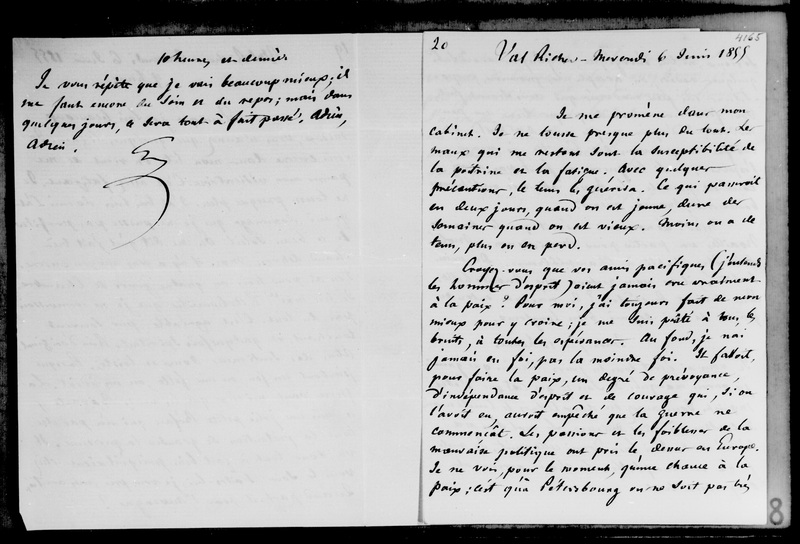 10 heures et demie.
Je vous répète que je vais beaucoup mieux; il
me faut encore du soin et du repos; mais dans
quelques jours, ce sera tout à fait passé. Adieu,
Adieu.
20
4165
Val Richer - Mercredi 6 Juin 1855
Je me promène dans mon
cabinet. Je ne tousse presque plus du tout. Les
maux qui me restent sont la susceptibilité de
la poitrine et la fatigue. Avec quelques
précautions, le tems les guérira. Ce qui passoit
en deux jours, quand on est jeune, dure des
semaines quand on est vieux. Moins on a de
tems, plus on en perd.
Croyez-vous que vos amis pacifiques (j'entends
les hommes d'esprit) aient jamais cru vraiment
à la paix? Pour moi, j'ai toujours fait de mon
mieux pour y croire; je me suis prêté à tous les
bruits, à toutes les espérances. Au fond, je n'ai
jamais eu foi, pas la moindre foi. Il falloit,
pour faire la paix, un degré de prévoyance,
d'indépendance d'esprit et de courage qui, si on
l'avoit eu, auroit empêché que la guerre ne
commençât. Les passions et les foiblesses de la
mauvaise politique ont pris le dessus en Europe.
Je ne vois, pour le moment, qu'une chance à la
paix; c'est qu'à Pétersbourg on ne soit pas très
8